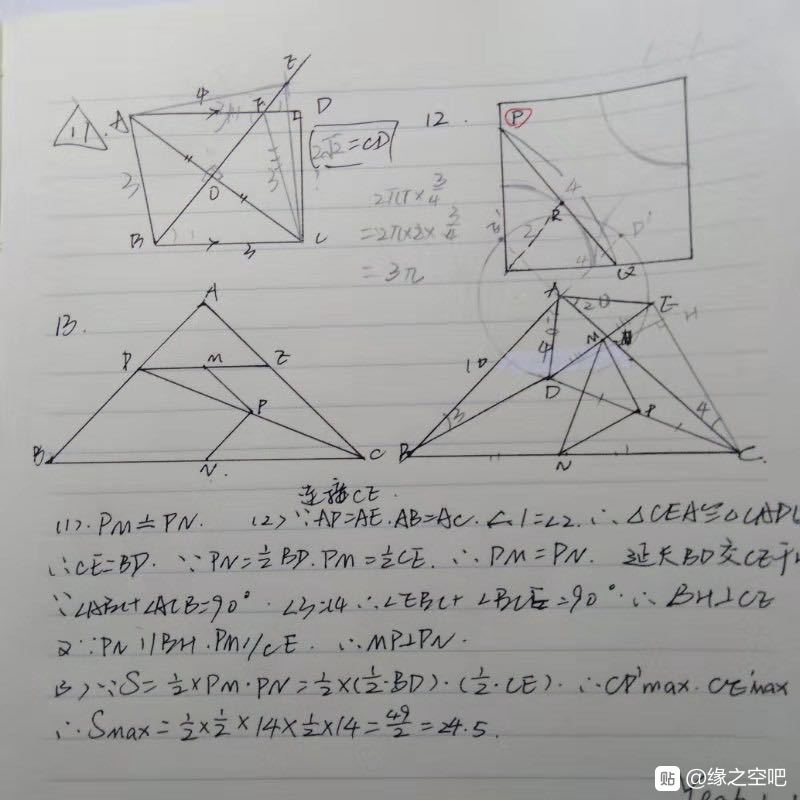 11.
A
4
E
F
D
2√2=CD
3
O
3
B
3
C
2πr×3/4
=2π×2×3/4
=3π
12.
P
4
R
2
4
Q
P'
13.
A
D
M
E
P
B
N
C
A
20
E
H
M
10
4
D
3
P
4
B
N
C
连接CE.
(1). PM=PN. (2)∵AD=AE. AB=AC. ∠1=∠2. ∴△CEA≌△
∴CE=BD. ∵PN=1/2BD. PM=1/2CE. ∴PM=PN. 延长BD交CE于H
∵∠ABC+∠ACB=90°. ∠3=∠4 ∴∠EBC+∠BCE=90°. ∴BH⊥CE
又∵PN//BH. PM//CE. ∴MP⊥PN.
(3)∵S=1/2×PM·PN=1/2×(1/2·BD)·(1/2·CE). ∴ max. max
∴Smax=1/2×1/2×14×1/2×14=49/2=24.5.
贴 @缘之空吧